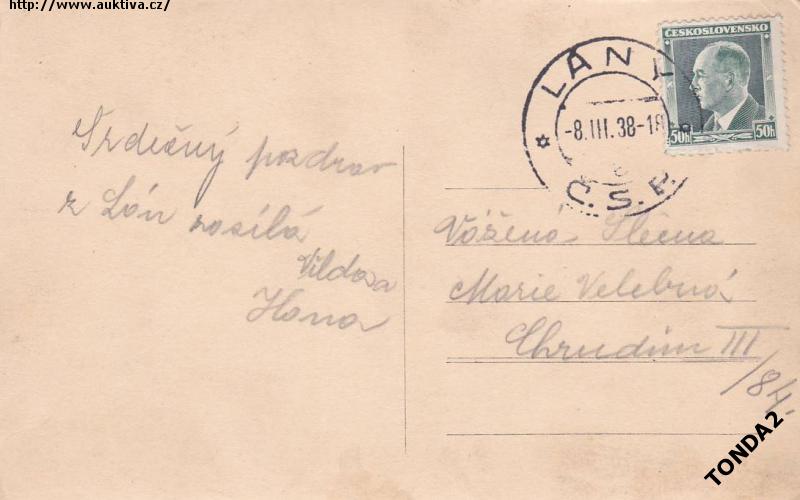 http://www.auktiva.cz/
ČESKOSLOVENSKO
50h 50h
LÁNY
-8.III.38-18
Č.S.R.
Srdečný pozdrav
z Lán zasílá
Hana
Vážená Slečna
Marie Velebná
Chrudim III
/84.
TONDA2